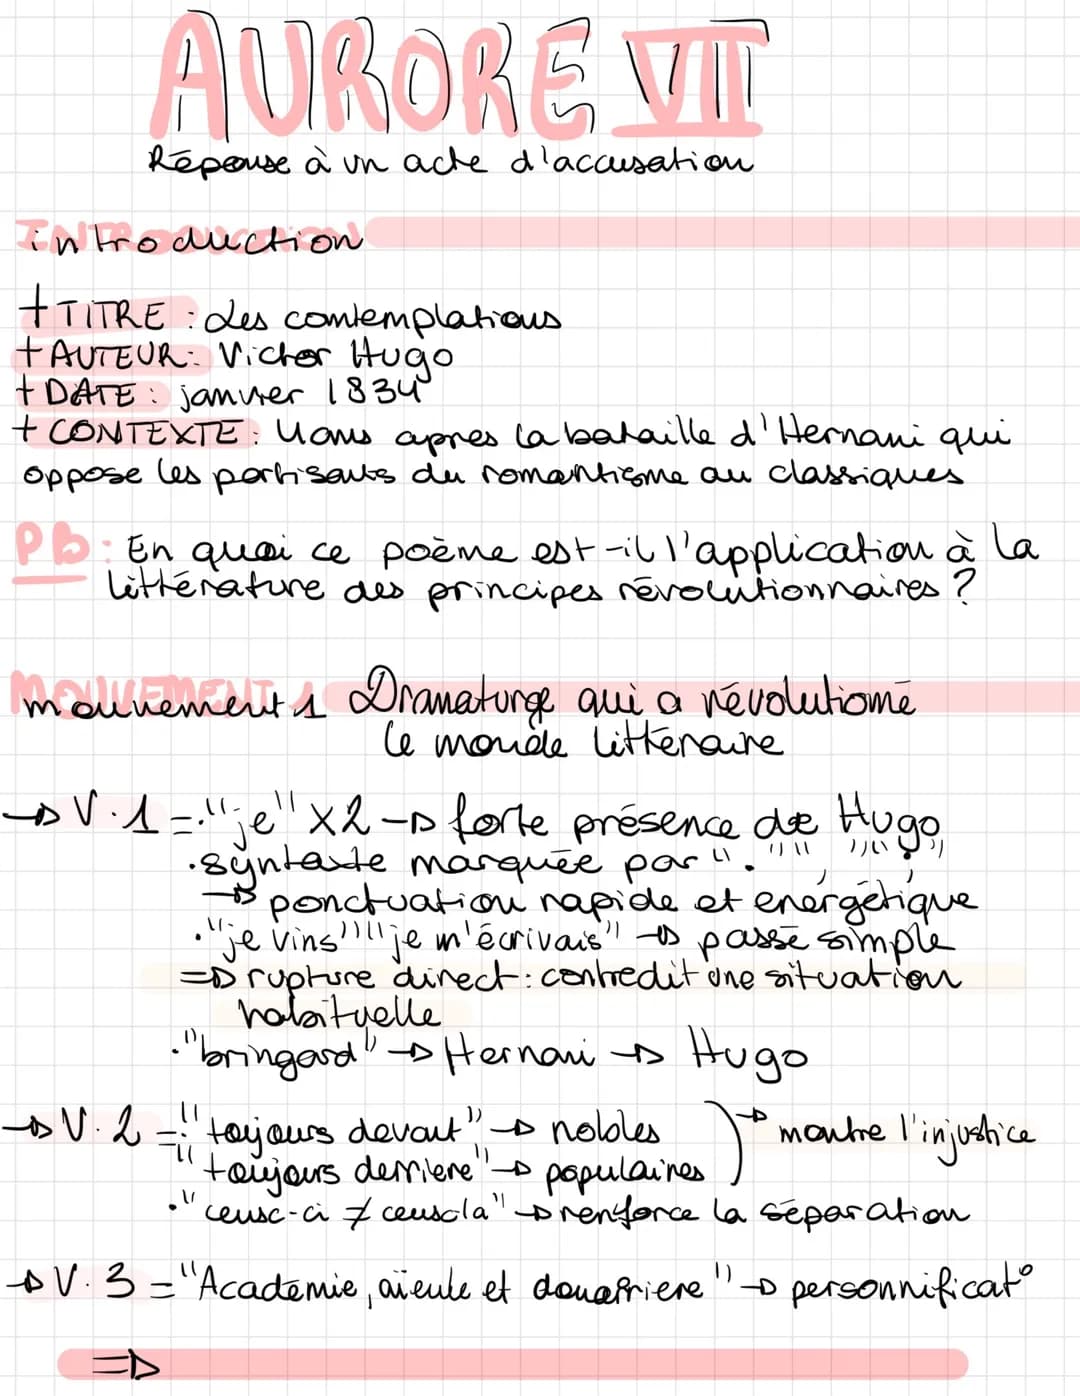 AURORE VII
Réponse à un acte d'accusation
introduction
+ TITRE : Les contemplations
+ AUTEUR : Victor Hugo
+ DATE : janvier 1834
+ CONTEXTE : 4ans apres la bataille d'Hernani qui
oppose les partisants du romantisme au classiques
PB : En quoi ce poème est-il l'application à la
littérature des principes révolutionnaires ?
mouvement 1 Dramaturge qui a révolutionné
le monde littéraire
→ V.1 = ."je" x2 → forte présence de Hugo
.syntaxte marquée par "." "," ";"
→ ponctuation rapide et énergétique
."je vins" "je m'écrivais" → passé simple
=> rupture direct : contredit une situation
habituelle
."bringard" → Hernani → Hugo
→ V.2 = ."toujours devant" → nobles
"toujours derriere" → populaires
→ montre l'injustice
."ceux-ci ≠ ceuxla" → renforce la séparation
→ V.3 = "Académie, aïeule et douairiere" → personnificat°
=>